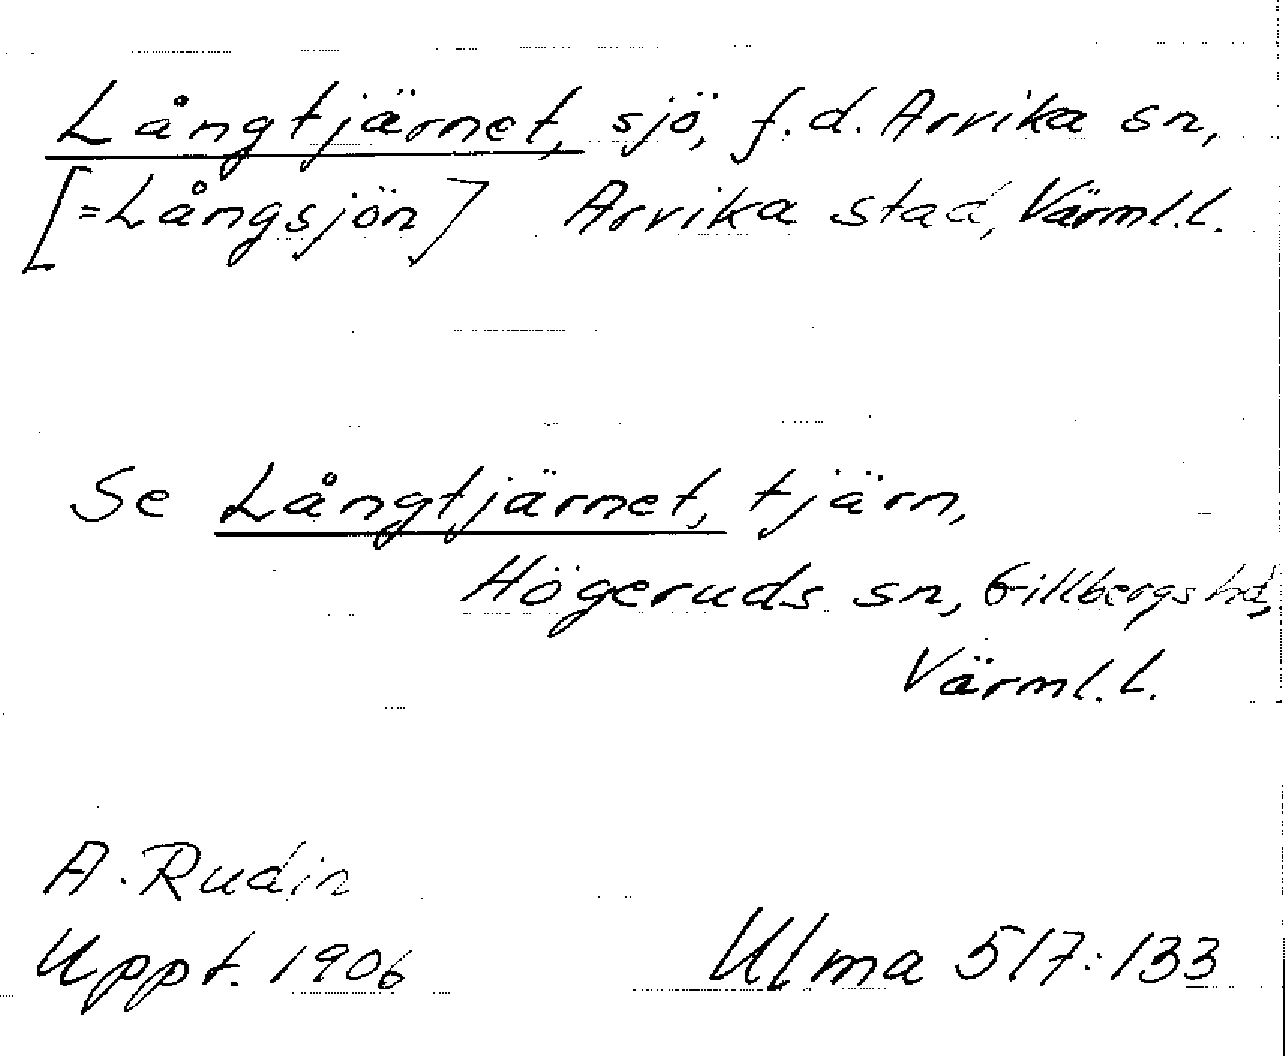 Långtjärnet, sjö, f.d. Arvika sn,
[=Långsjön] Arvika stad, Värml.l.
Se Långtjärnet, tjärn,
Högeruds sn, Gillbergs hd,
Värml.l.
A. Rudin
Uppt. 1906
Ulma 517:133